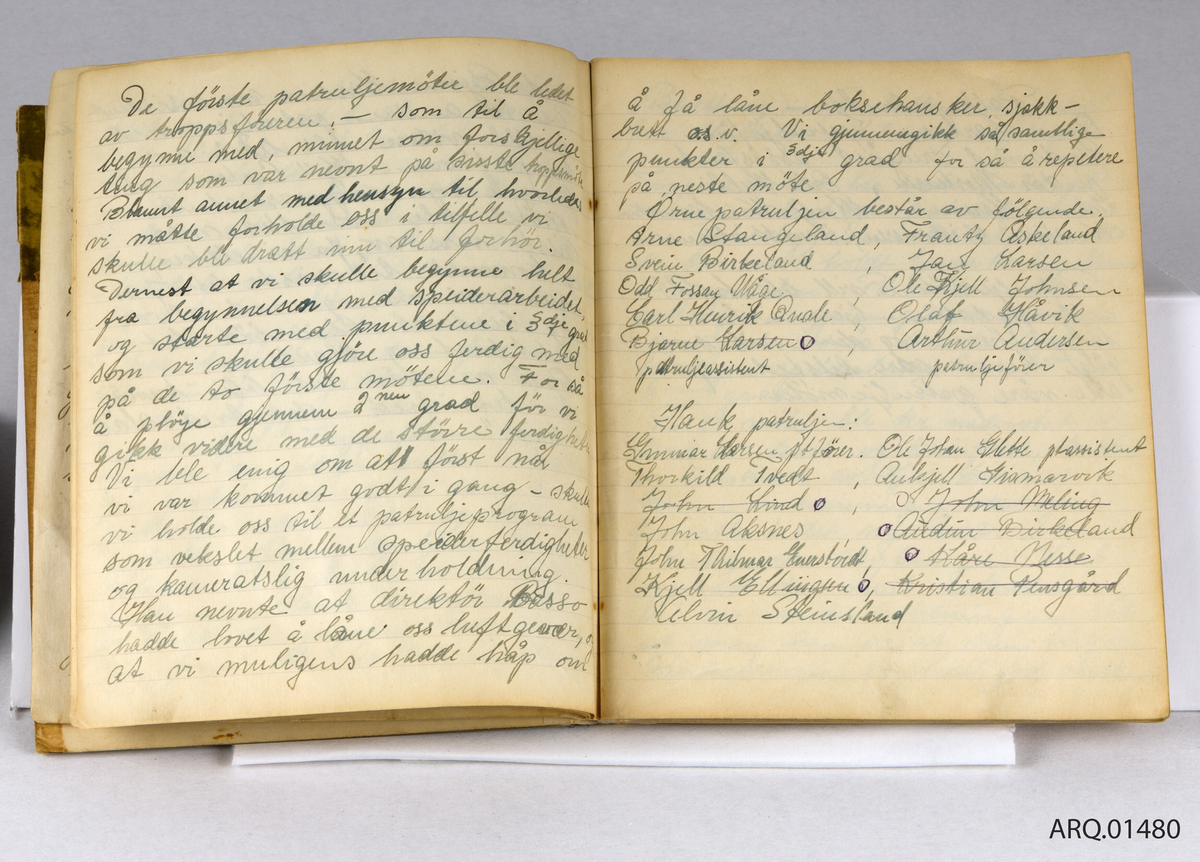 De förste patruljemöter ble ledet
av troppsföreren. — som til å
begynne med, minnet om forskjellige
ting som var nevnt på siste troppsmöte
Blannt annet med hensyn til hvorledes
vi måtte forholde oss i tilfelle vi
skulle bli dratt inn til forhör.
Dernest at vi skulle begynne helt
fra begynnelsen med speiderarbeidet,
og starte med punktene i 3dje grad
som vi skulle gjöre oss ferdig med
på de to förste mötene. For så
å plöye gjennem 2nen grad för vi
gikk videre med de större ferdigheter
Vi ble enig om at först når
vi var kommet godt i gang - skulle
vi holde oss til et patruljeprogram
som vekslet mellem speiderferdigheter
og kameratslig underholdning.
Han nevnte at direktör Basso
hadde lovet å låne oss luftgevær, og
at vi muligens hadde håp om
å få låne boksehansker, sjakk-
brett os.v. Vi gjennemgikk så samtlige
punkter i 3dje grad for så å repetere
på neste möte
Örnepatruljen består av fölgende:
Arne Stangeland, Frantz Askeland
Svein Birkeland, Jarl Larsen
Odd Fossan Våge, Ole Kjell Johnsen
Carl Henrik Qvale, Olaf Håvik
Bjarne Larsen o, Arthur Andersen
patruljeassistent patruljeförer
Hauk patruljen:
Gunnar Larsen ptförer. Ole Johan Glette ptassistent
Thorkild Tvedt, Ankjell Gismarvik
John Lind o, o John Meling
John Aksnes o Audun Birkeland
John Thilmar Enerstvedt, o Kåre Nesse
Kjell Ellingsen o, Kristian Tensgård
Elvin Steinsland
ARQ.01480